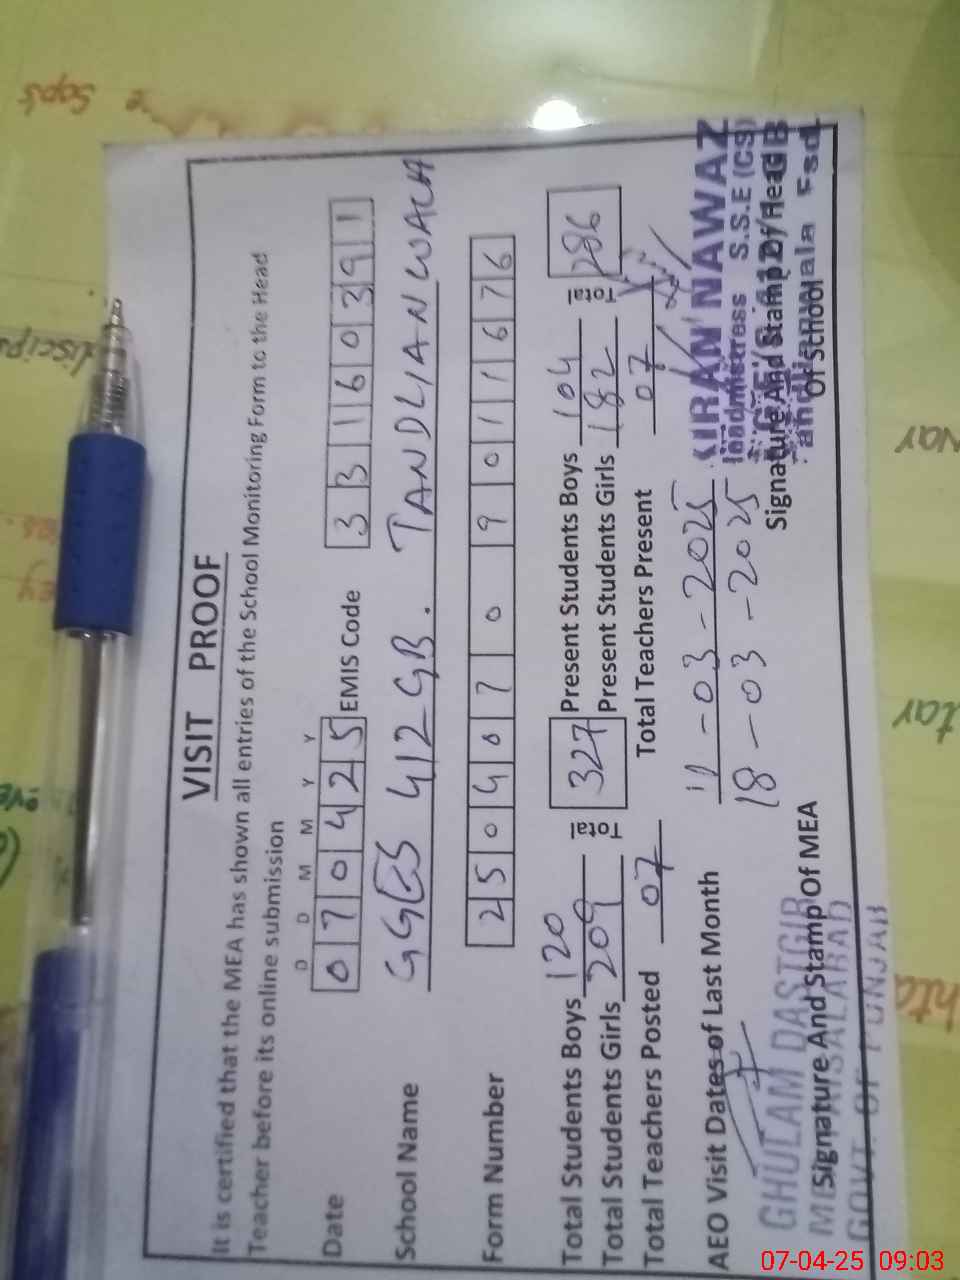 VISIT PROOF
It is certified that the MEA has shown all entries of the School Monitoring Form to the Head
Teacher before its online submission
D D M M Y Y
Date 070425 EMIS Code 33160391
School Name GGES 412 GB. TANDLIANWALA
Form Number 25040709011676
Total Students Boys 120 Present Students Boys 104
Total 327 Total 286
Total Students Girls 209 Present Students Girls 182
Total Teachers Posted 07 Total Teachers Present 07
AEO Visit Dates of Last Month 11-03-2025
18-03-2025
KIRAN NAWAZ
Headmistress S.S.E (CS)
GHULAM DASTGIR
Signature And Stamp Of MEA
Signature And Stamp Of Head
Of School
MEA FAISALABAD
GOVT. OF PUNJAB
Tandlianwala Fsd
07-04-25 09:03